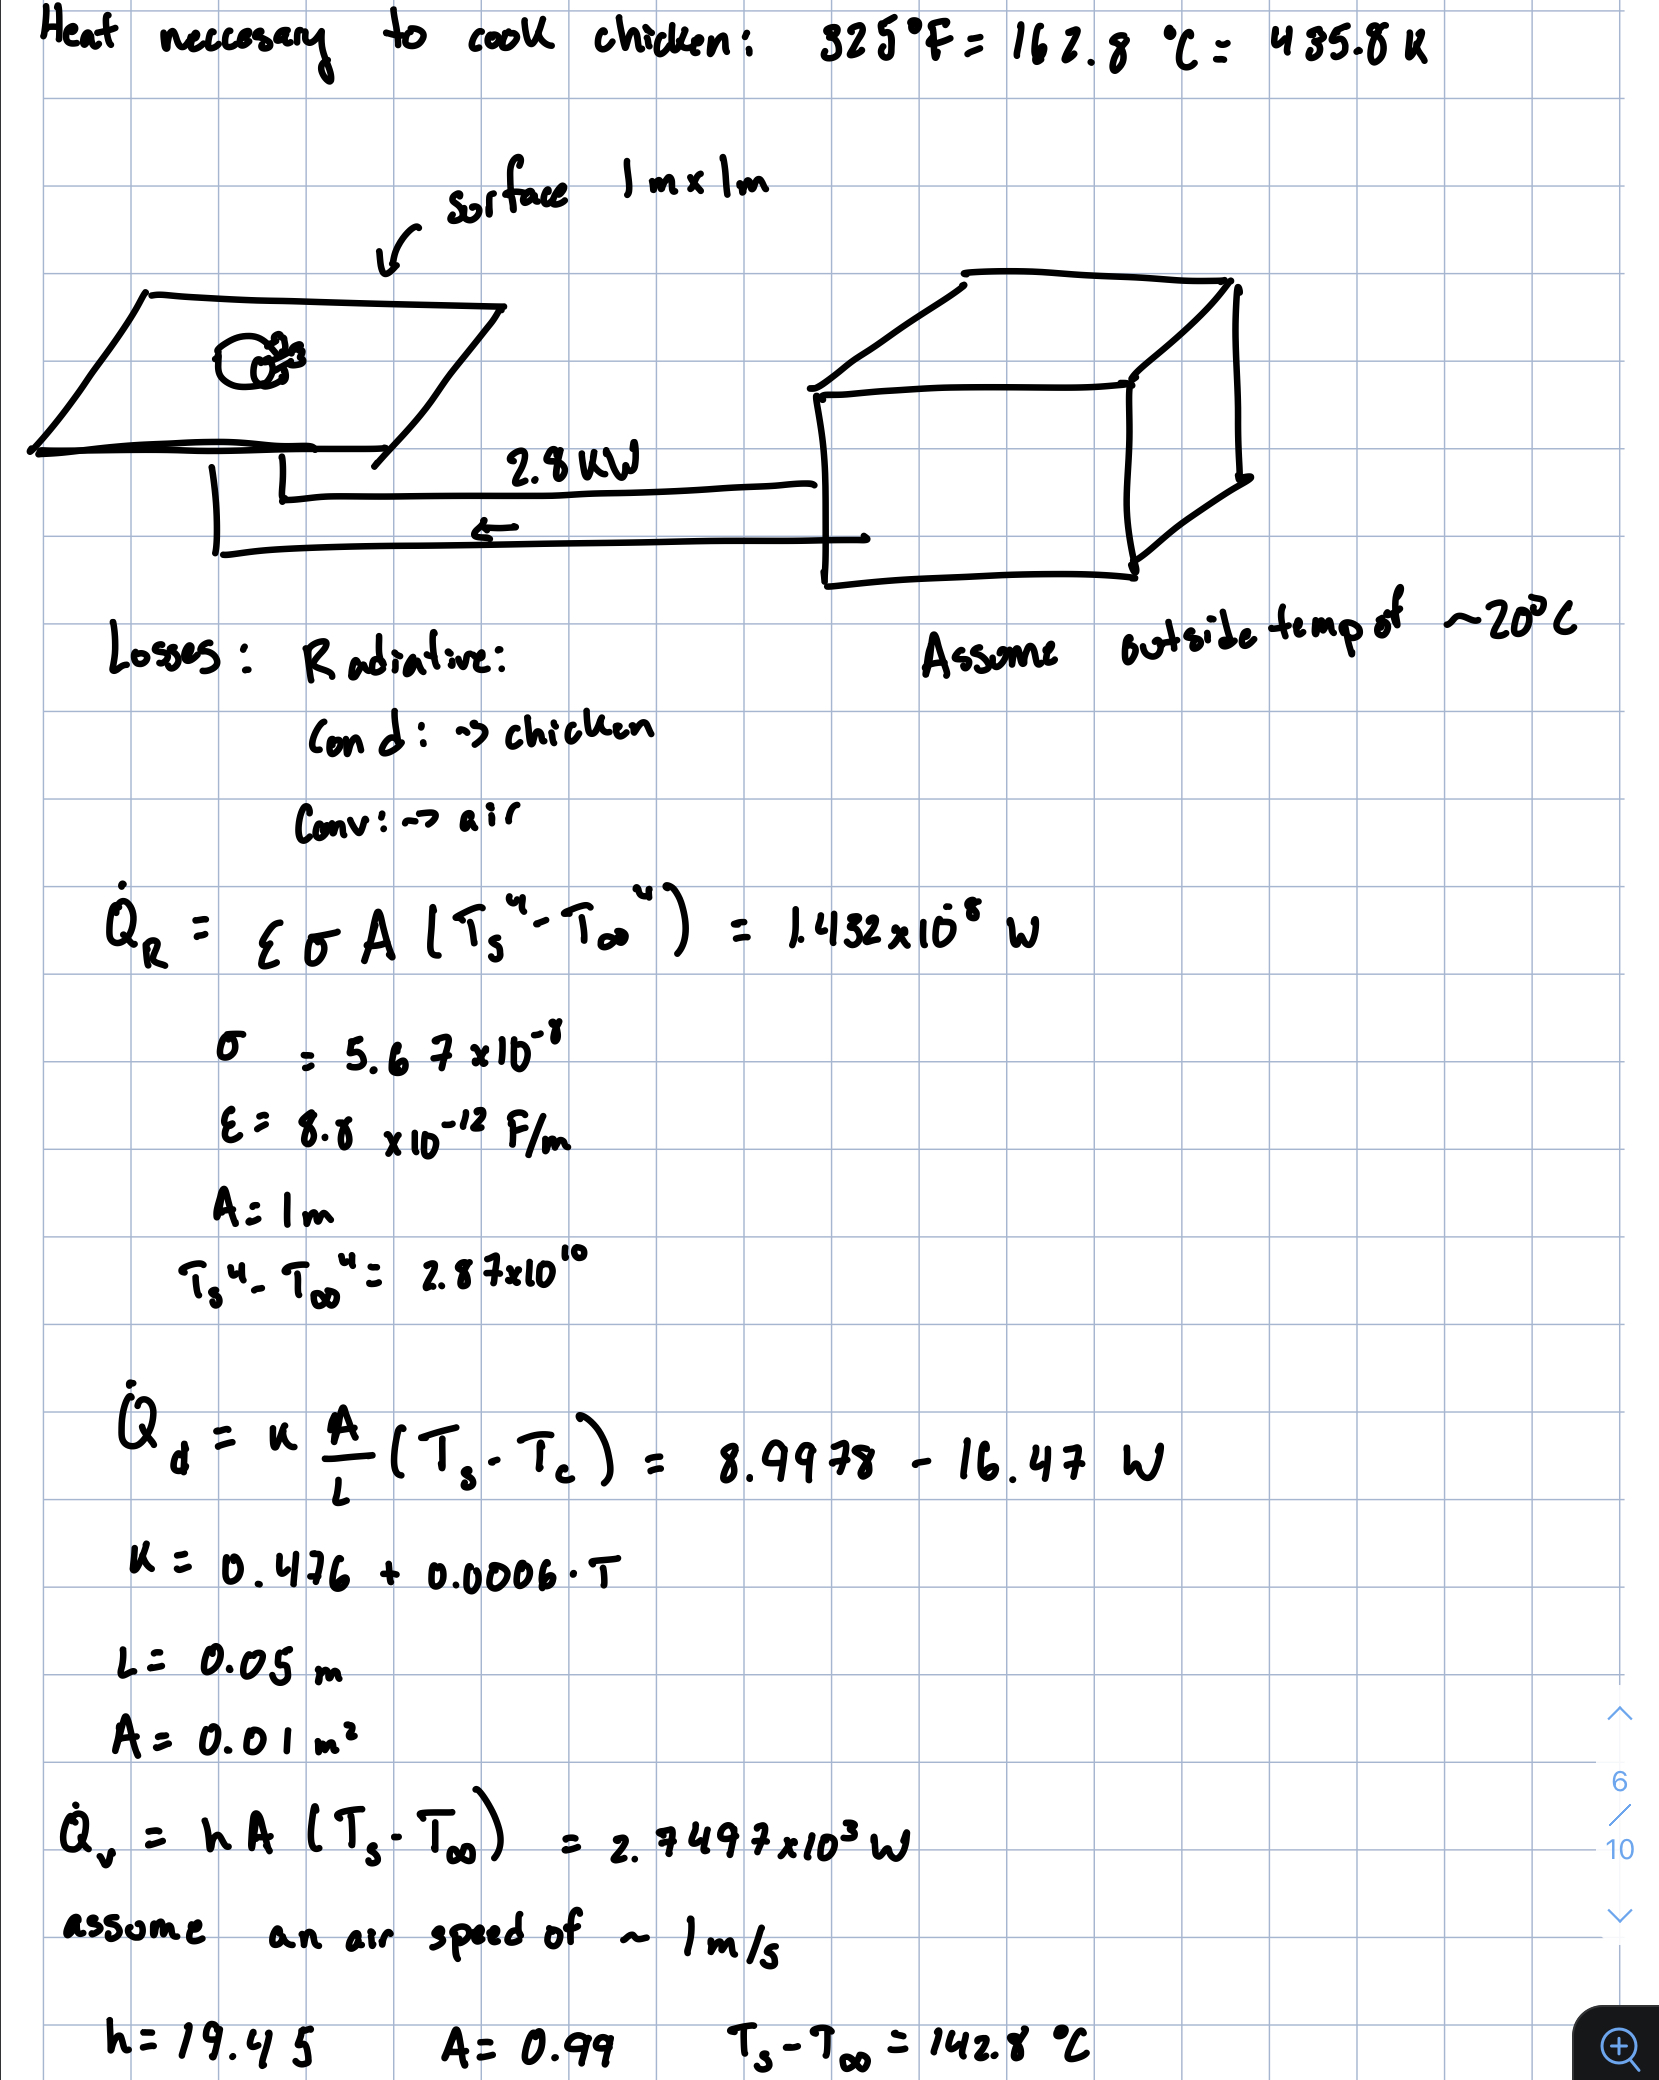 Heat neccesary to cook chicken: 325°F = 162.8 °C = 435.8 K
surface 1m x 1m
2.8 KW
Assume outside temp of ~20°C
Losses: Radiative:
Cond: -> chicken
Conv: -> air
Q̇_R = ε σ A (T_s⁴ - T_∞⁴) = 1.432x10⁻⁸ W
σ = 5.67 x10⁻⁸
ε = 8.8 x10⁻¹² F/m
A = 1m
T_s⁴ - T_∞⁴ = 2.87x10¹⁰
Q̇_d = K A/L (T_s - T_c) = 8.9978 - 16.47 W
K = 0.476 + 0.0006·T
L = 0.05 m
A = 0.01 m²
Q̇_v = h A (T_s - T_∞) = 2.7497x10³ W
assume an air speed of ~ 1m/s
h = 19.45 A = 0.99 T_s - T_∞ = 142.8 °C
6
/
10